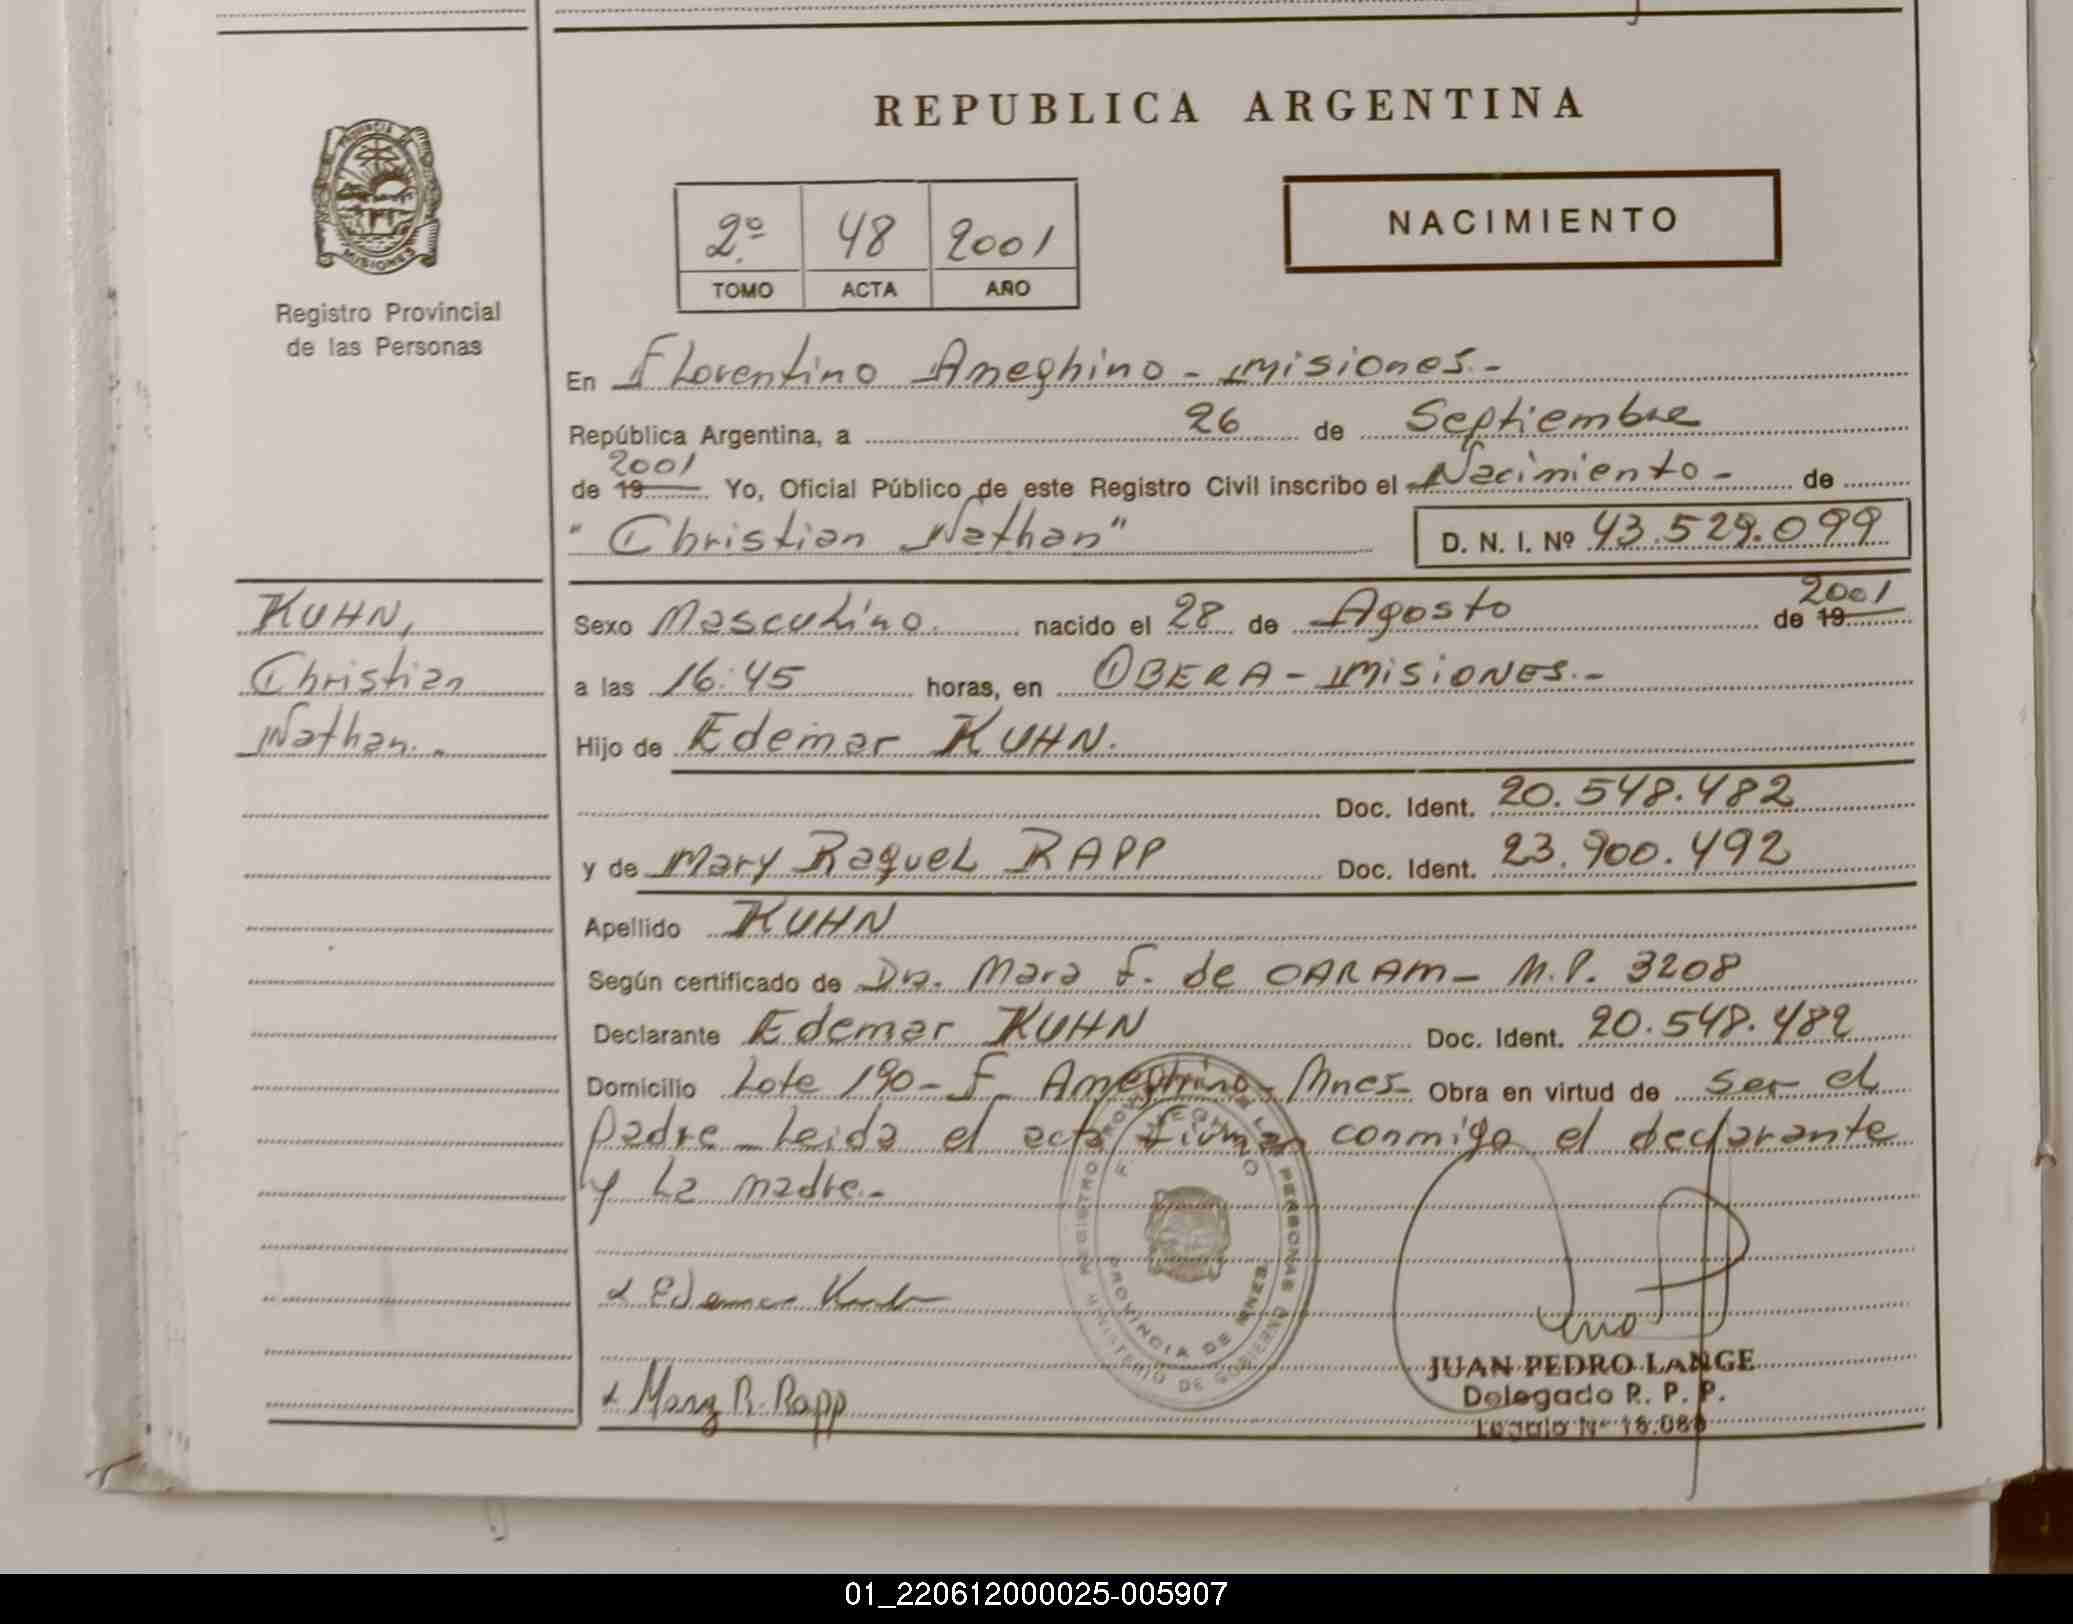 REPUBLICA ARGENTINA
PROVINCIA DE
MISIONES
Registro Provincial
de las Personas
2º 48 2001
TOMO ACTA AÑO
NACIMIENTO
En Florentino Ameghino - Misiones.-
República Argentina, a 26 de Septiembre
2001
de 19 Yo, Oficial Público de este Registro Civil inscribo el Nacimiento - de
"Christian Nathan" D. N. I. Nº 43.529.099
KUHN,
Christian
Nathan.-
2001
Sexo Masculino. nacido el 28 de Agosto de 19
a las 16:45 horas, en OBERA - MISIONES.-
Hijo de Edemar KUHN.
Doc. Ident. 20.548.482
y de Mary Raquel RAPP Doc. Ident. 23.900.492
Apellido KUHN
Según certificado de Dra. Mara F. de OARAM - M.P. 3208
Declarante Edemar KUHN Doc. Ident. 20.548.482
Domicilio Lote 190 - F. Ameghino - Mnes - Obra en virtud de ser el
padre - Leida el acta firman conmigo el declarante
y La madre.-
REGISTRO PROV DE LAS PERSONAS
F. AMEGHINO
PROVINCIA DE MNES
MINISTERIO DE GOBIERNO
x Edemar Kuhn
x Mary R. Rapp
JUAN PEDRO LANGE
Delegado R. P. P.
Legajo Nº
01_220612000025-005907